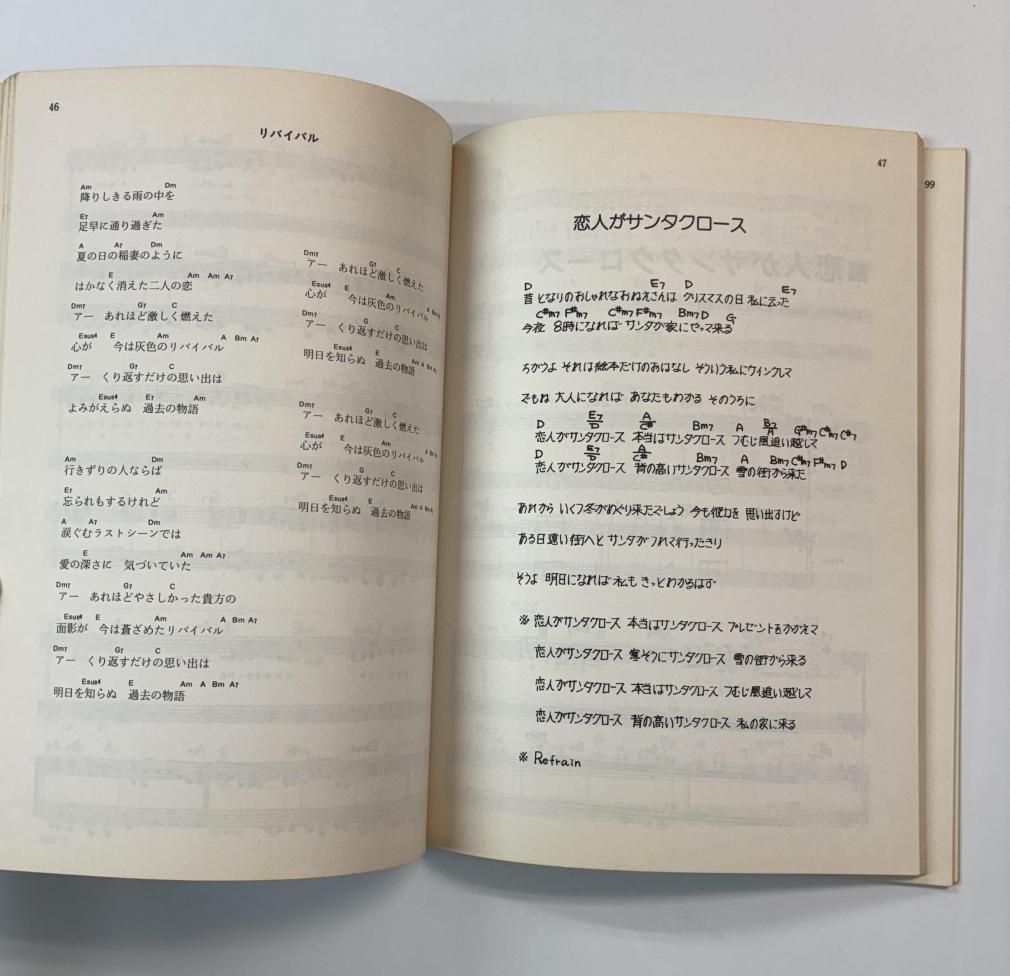 46
リバイバル
Am Dm
降りしきる雨の中を
E7 Am
足早に通り過ぎた
A A7 Dm
夏の日の稲妻のように
E Am Am A7
はかなく消えた二人の恋
Dm7 G7 C
アー あれほど激しく燃えた
Esus4 E Am A Bm A7
心が 今は灰色のリバイバル
Dm7 G7 C
アー くり返すだけの思い出は
Esus4 E7 Am
よみがえらぬ 過去の物語
Am Dm
行きずりの人ならば
E7 Am
忘られもするけれど
A A7 Dm
涙ぐむラストシーンでは
E Am Am A7
愛の深さに 気づいていた
Dm7 G7 C
アー あれほどやさしかった貴方の
Esus4 E Am A Bm A7
面影が 今は蒼ざめたリバイバル
Dm7 G7 C
アー くり返すだけの思い出は
Esus4 E Am A Bm A7
明日を知らぬ 過去の物語
Dm7 G7 C
アー あれほど激しく燃えた
Esus4 E Am A Bm A7
心が 今は灰色のリバイバル
Dm7 G7 C
アー くり返すだけの思い出は
Esus4 E Am A Bm A7
明日を知らぬ 過去の物語
Dm7 G7 C
アー あれほど激しく燃えた
Esus4 E Am A Bm A7
心が 今は灰色のリバイバル
Dm7 G C
アー くり返すだけの思い出は
Esus4 E Am A Bm A7
明日を知らぬ 過去の物語
47
恋人がサンタクロース
D E7 D E7
昔 となりのおしゃれなおねえさんは クリスマスの日 私に云った
C#m7 F#m7 C#m7 F#m7 Bm7 D G
今夜 8時になれば サンタが家にやって来る
ちがうよ それは絵本だけのおはなし そういう私にウィンクして
でもね 大人になれば あなたもわかる そのうちに
D E7/D A/C# Bm7 A B7/A G#m7 C#m7 C#7
恋人がサンタクロース 本当はサンタクロース つむじ風追い越して
D E7/D A/C# Bm7 A Bm7 C#m7 F#m7 D
恋人がサンタクロース 背の高いサンタクロース 雪の街から来た
あれから いくつ冬がめぐり来たでしょう 今も彼女を 思い出すけど
ある日遠い街へと サンタがつれて行ったきり
そうよ 明日になれば 私も きっとわかるはず
※ 恋人がサンタクロース 本当はサンタクロース プレゼントをかかえて
恋人がサンタクロース 寒そうにサンタクロース 雪の街から来る
恋人がサンタクロース 本当はサンタクロース つむじ風追い越して
恋人がサンタクロース 背の高いサンタクロース 私の家に来る
※ Refrain
99